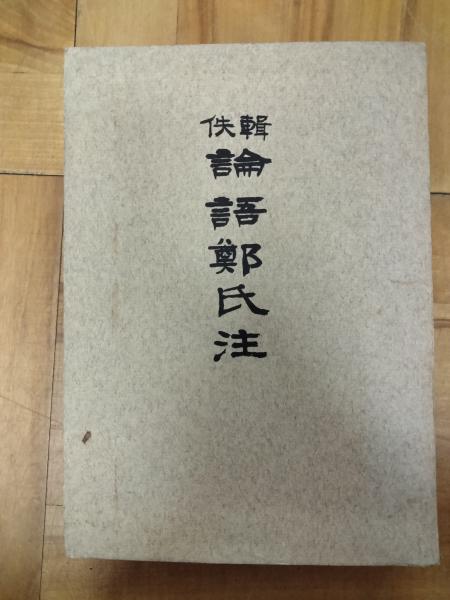 輯佚
論語鄭氏注